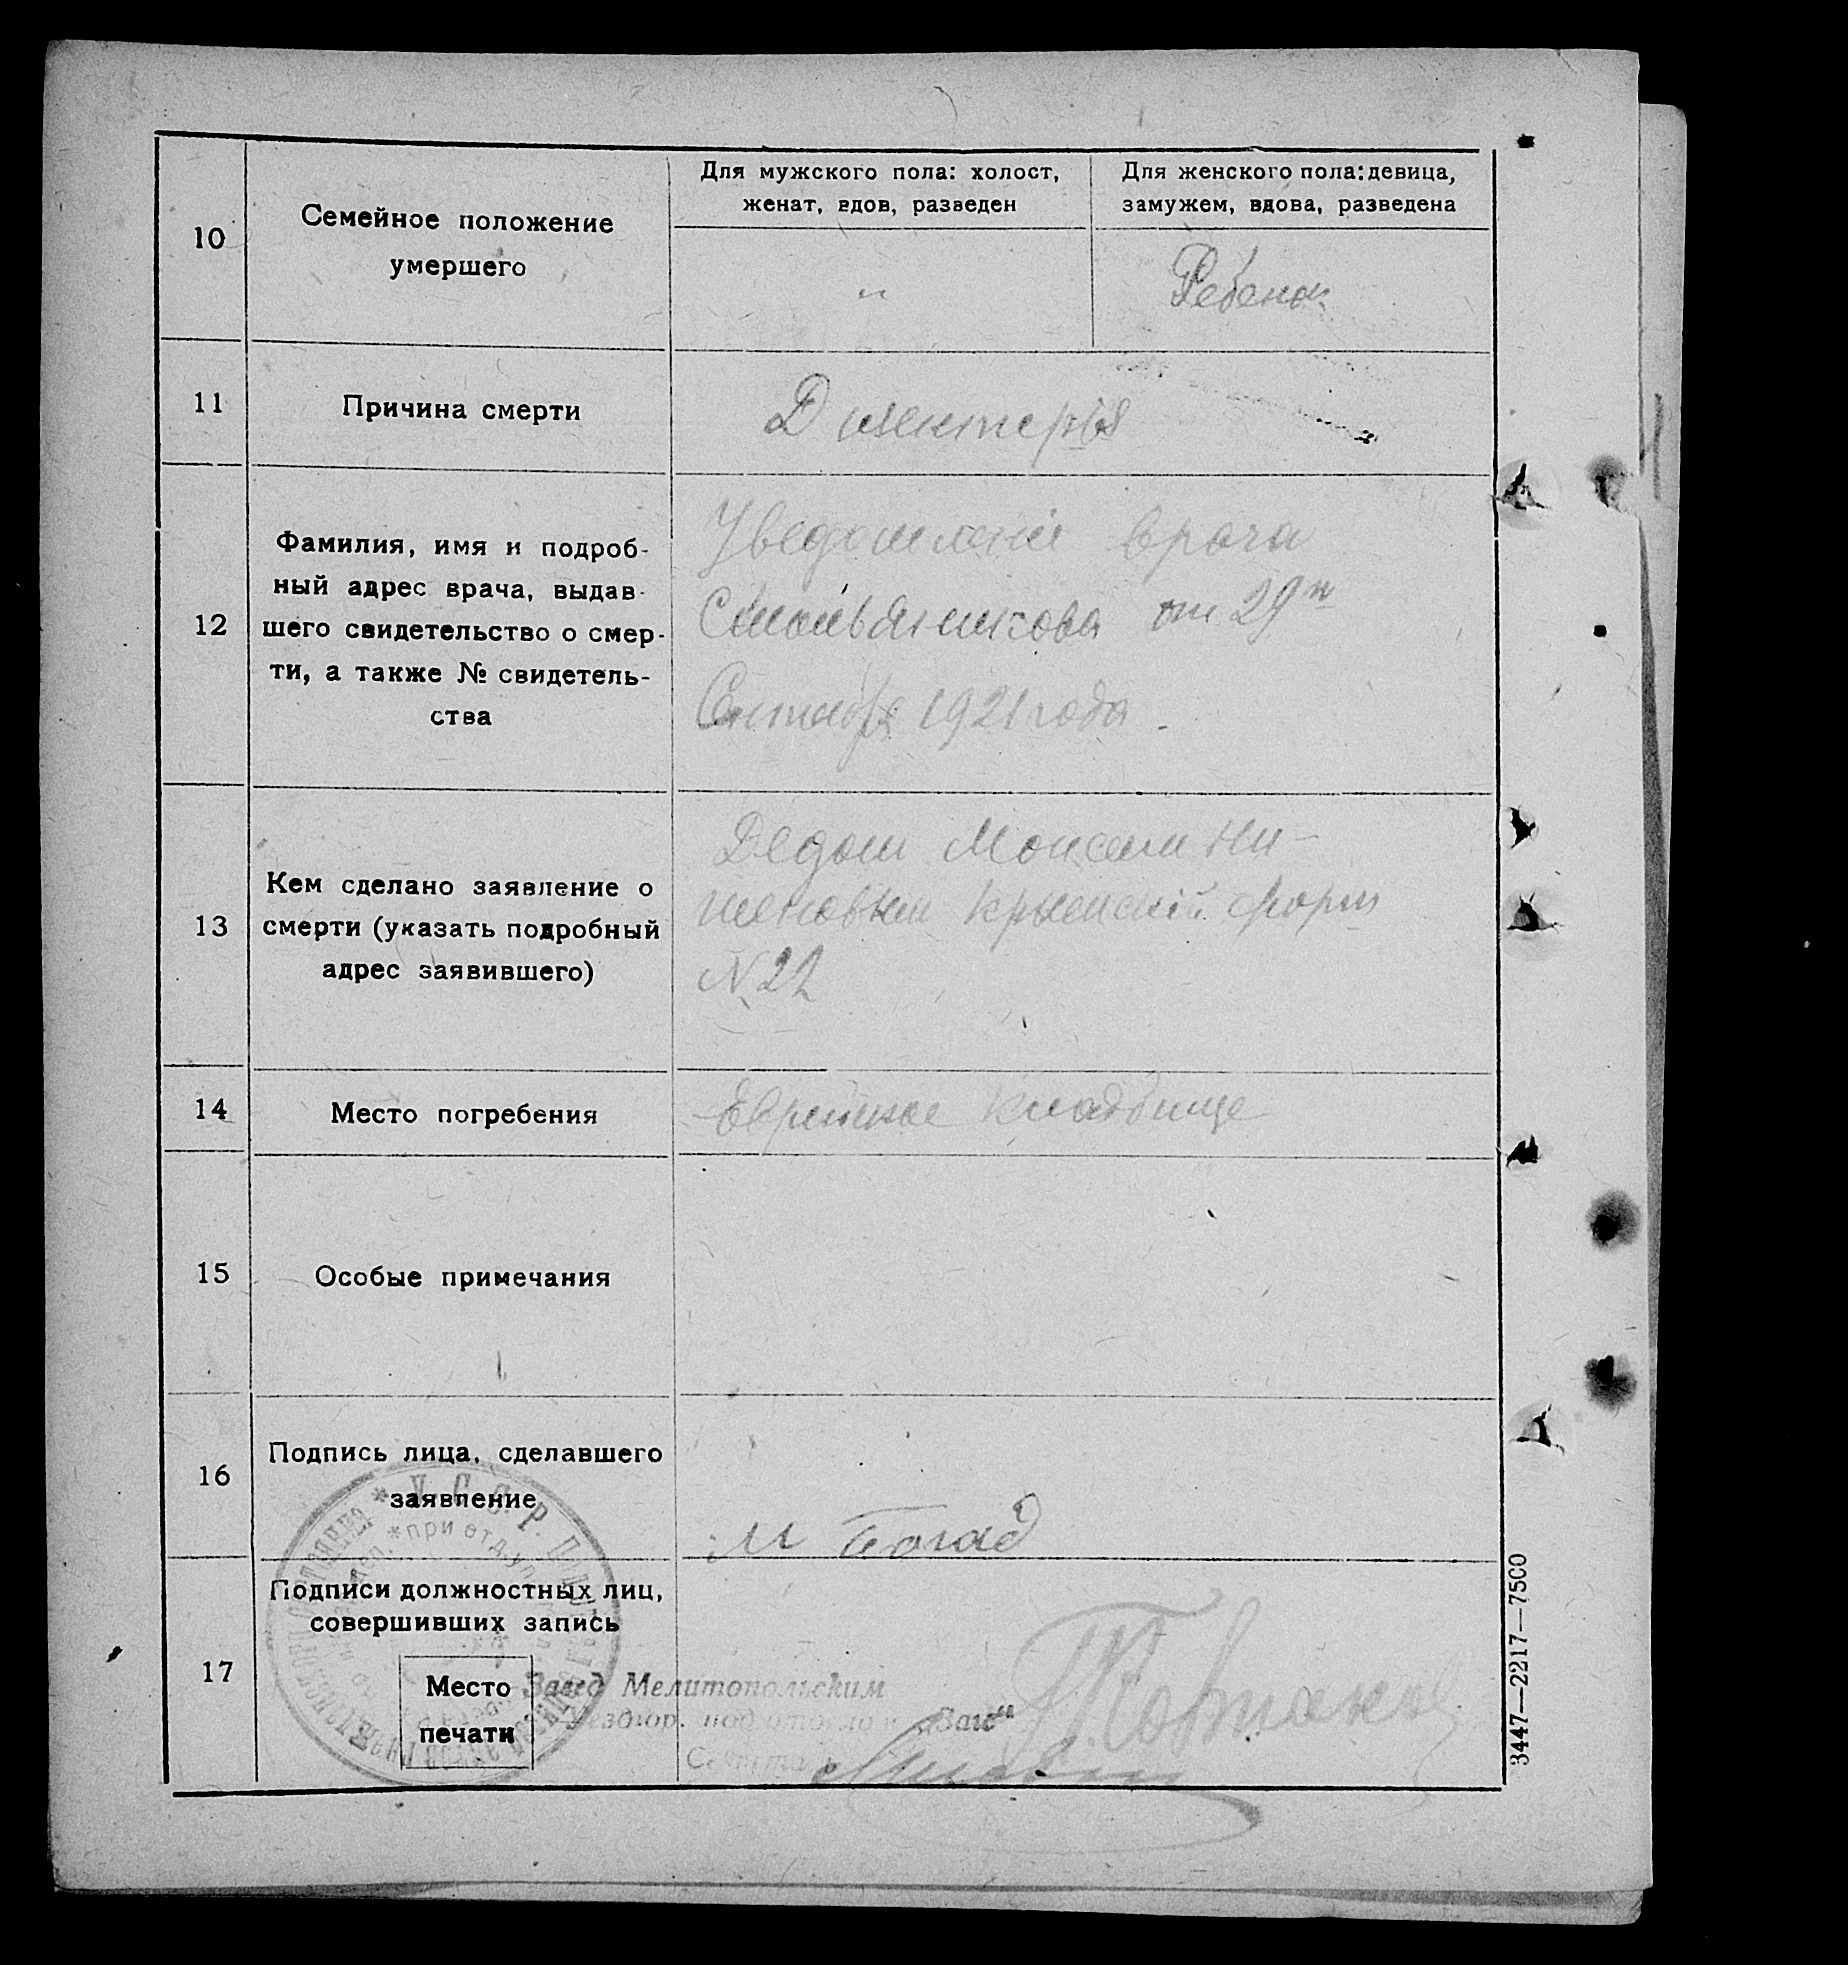 10
Семейное положение
умершего
Для мужского пола: холост,
женат, вдов, разведен
Для женского пола: девица,
замужем, вдова, разведена
"
Ребенок
11
Причина смерти
Дизентерія
12
Фамилия, имя и подроб-
ный адрес врача, выдав-
шего свидетельство о смер-
ти, а также № свидетель-
ства
Уведомленіе врача
от 29
Сентября 1921 года.
13
Кем сделано заявление о
смерти (указать подробный
адрес заявившего)
Дедом
Крымскій форт
N 22
14
Место погребения
Еврейское кладбище
15
Особые примечания
16
Подпись лица, сделавшего
заявление
М Богад
17
Подписи должностных лиц,
совершивших запись
Место
печати
Завед Мелитопольским
Уездгор. подотделом „Загс"
* У. С. С. Р.
*при отд. уп
3447—2217—7500